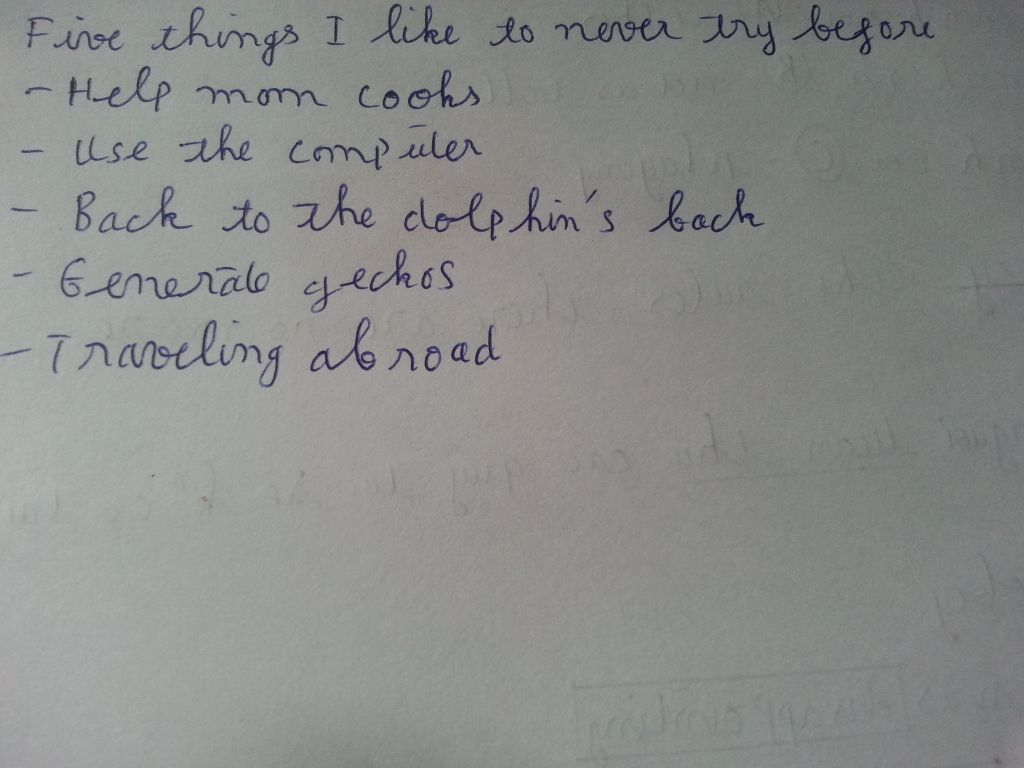 Five things I like to never try before
- Help mom cooks
- Use the computer
- Back to the dolphin's back
- Generate geckos
- Traveling abroad